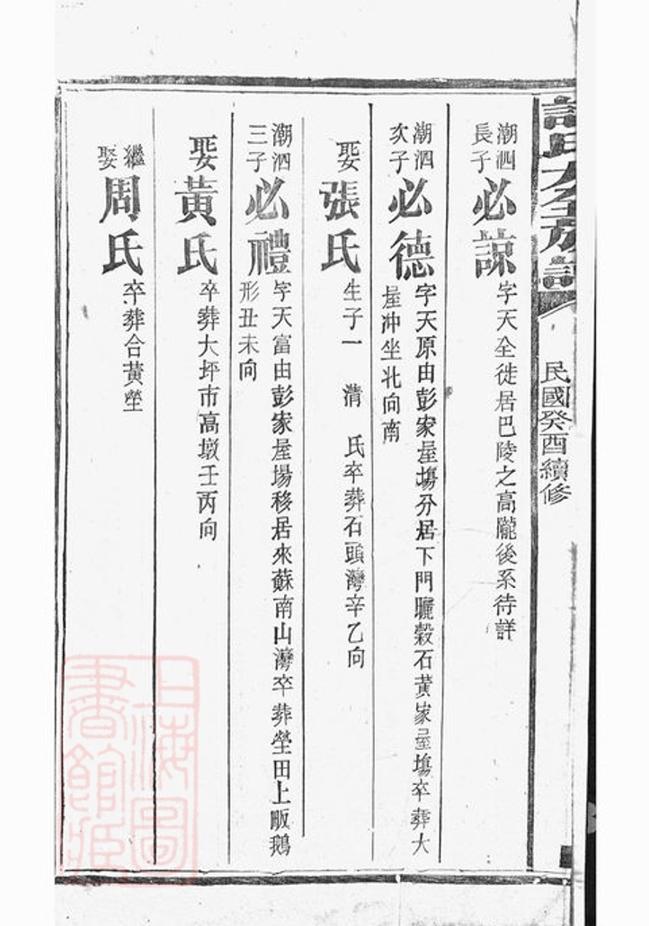 氏大全族譜
民國癸酉續修
潮泗長子必諒字天全徙居巴陵之高隴後系待詳
潮泗次子必德字天原由彭家屋塲分居下門曬穀石黃家屋塲卒葬大
屋冲坐北向南
娶張氏生子一 清 氏卒葬石頭灣辛乙向
潮泗三子必禮字天富由彭家屋塲移居來蘇南山灣卒葬塋田上畈鵝
形丑未向
娶黃氏卒葬大坪市高墩壬丙向
繼娶周氏卒葬合黃塋
上海圖
書館